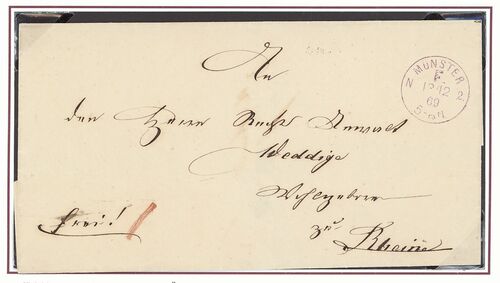 An
den Herrn Rechts Anwalt
Weddige
Wohlgeboren
zu
Rheine
frei!
MÜNSTER
N 2
12
69